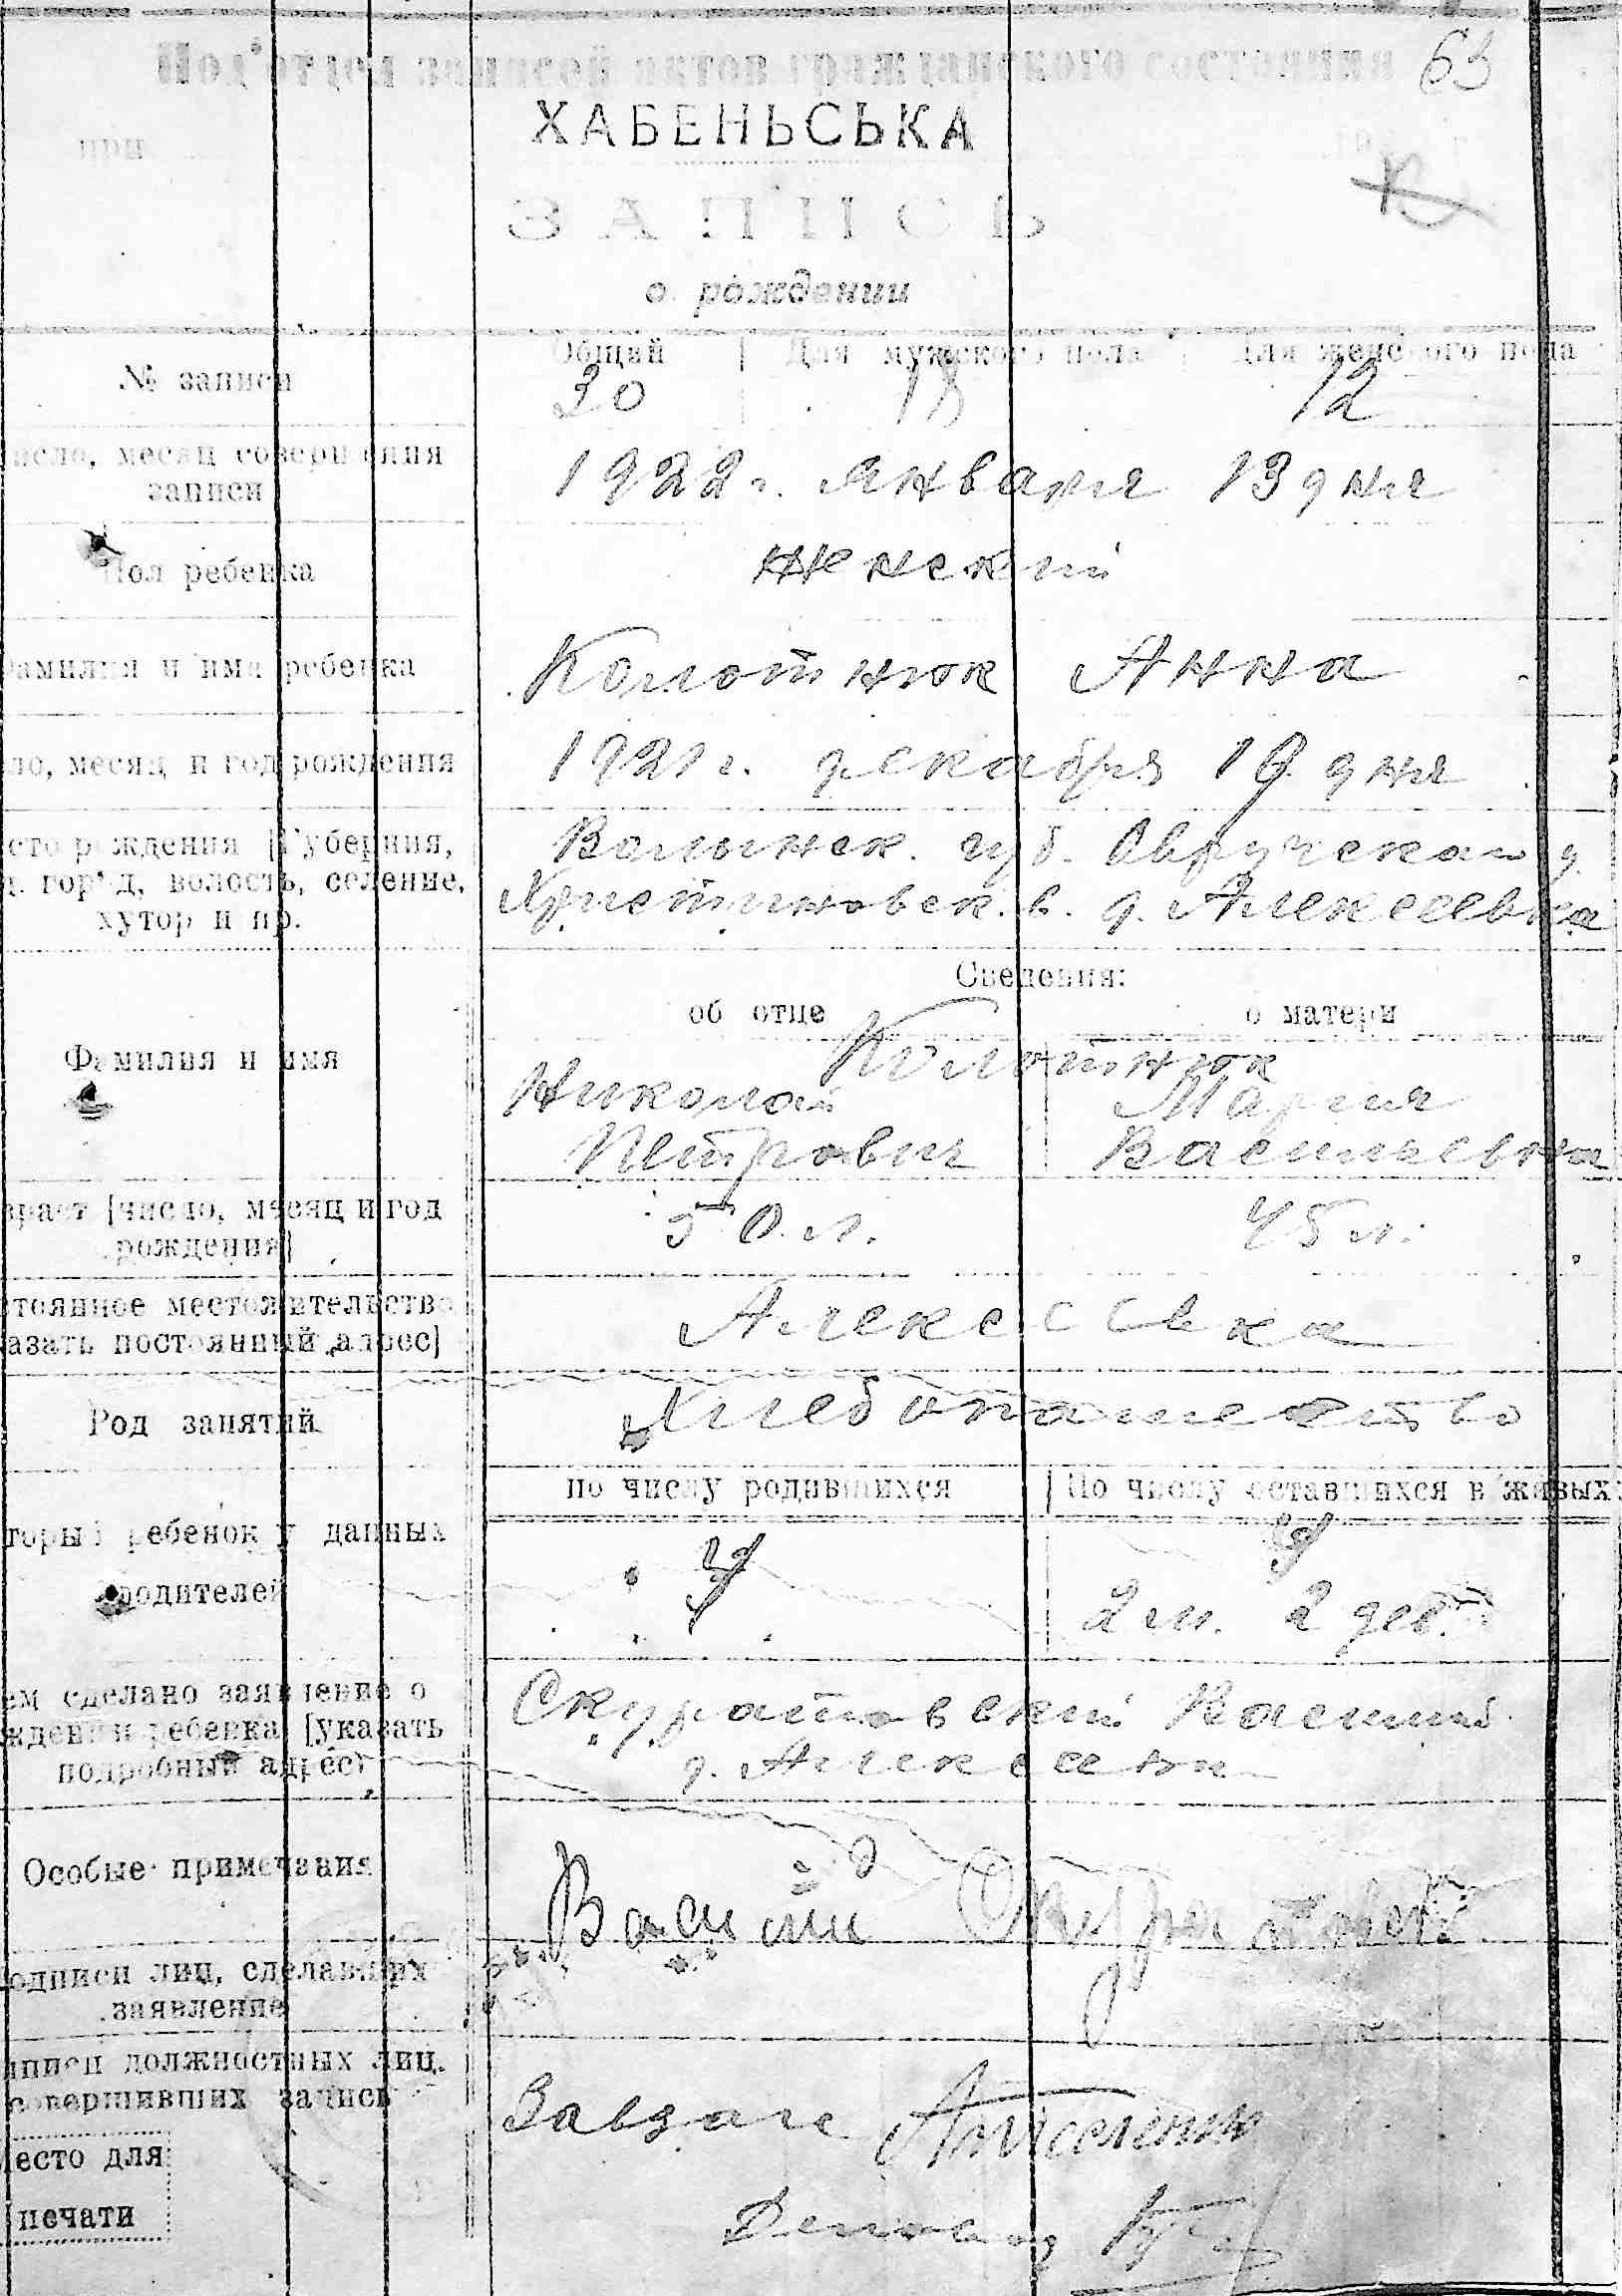 Под'отдел записей актов гражданского состояния 63
ХАБЕНЬСЬКА
при
ЗАПИСЬ
о рождении
Общий | Для мужского пола | Для женского пола
№ записи 30 18 12
исло, месяц совершения
записи
1922 г. Января 13 дня
Пол ребенка женский
амилия и имя ребенка Колотнюк Анна
ло, месяц и год рождения 1921 г. декабря дня
сто рождения [Губерния,
гор д, волость, селение,
хутор и пр.
Волынск. губ. Овручского у.
Христиновск. в. д. Алексеевка
Сведения:
об отце о матери
Фамилия и имя Колотнюк
Николай Мария
Петрович Васильевна
зраст [число, месяц и год
рождения]
50 л. 45 л.
тоянное местожительство
азать постоянный адрес]
Алексеевка
Род занятий Хлебопашество
по числу родившихся | По числу оставшихся в живых
торый ребенок у данных
родителей
2 м. 2 дев.
ем сделано заявление о
ждении ребенка [указать
подробный адрес)
Скуратовский Василий
д. Алексеевка
Особые примечания
Василий Скуратовский
одписи лиц, сделавших
заявление
дписи должностных лиц.
совершивших запись
Завзаге
есто для
печати
Делов од